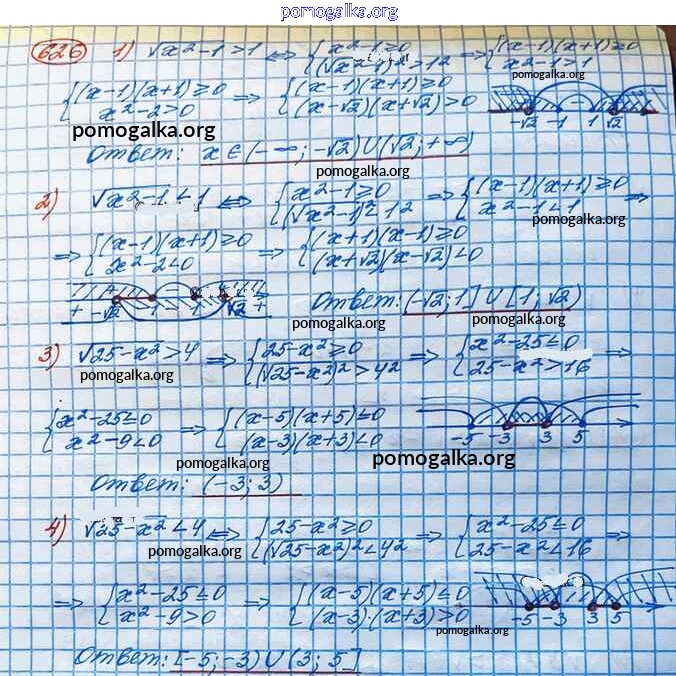 pomogalka.org
626 1) √x²-1 > 1 ⇔ {x²-1≥0 {(√x²-1)² > 1² ⇒ {(x-1)(x+1)≥0 {x²-1>1
pomogalka.org
{(x-1)(x+1)≥0 {x²-2>0 ⇒ {(x-1)(x+1)≥0 {(x-√2)(x+√2)>0 -√2 -1 1 √2
pomogalka.org
Ответ: x∈(-∞; -√2)∪(√2; +∞)
pomogalka.org
2) √x²-1 < 1 ⇔ {x²-1≥0 {(√x²-1)² < 1² ⇒ {(x-1)(x+1)≥0 {x²-1<1 ⇒
pomogalka.org
⇒ {(x-1)(x+1)≥0 {x²-2<0 ⇒ {(x+1)(x-1)≥0 {(x+√2)(x-√2)<0
+ -√2 -1 - 1 √2 + Ответ: (-√2; 1]∪[1; √2)
pomogalka.org
3) √25-x² > 4 ⇒ {25-x²≥0 {(√25-x²)² > 4² ⇒ {x²-25≤0 {25-x²>16 ⇒
pomogalka.org
{x²-25≤0 {x²-9<0 ⇒ {(x-5)(x+5)≤0 {(x-3)(x+3)<0 -5 -3 3 5
pomogalka.org pomogalka.org
Ответ: (-3; 3)
4) √25-x² < 4 ⇔ {25-x²≥0 {(√25-x²)² < 4² ⇒ {x²-25≤0 {25-x²<16 ⇒
pomogalka.org
⇒ {x²-25≤0 {x²-9>0 ⇒ {(x-5)(x+5)≤0 {(x-3)·(x+3)>0 -5 -3 3 5
pomogalka.org
Ответ: [-5; -3)∪(3; 5]